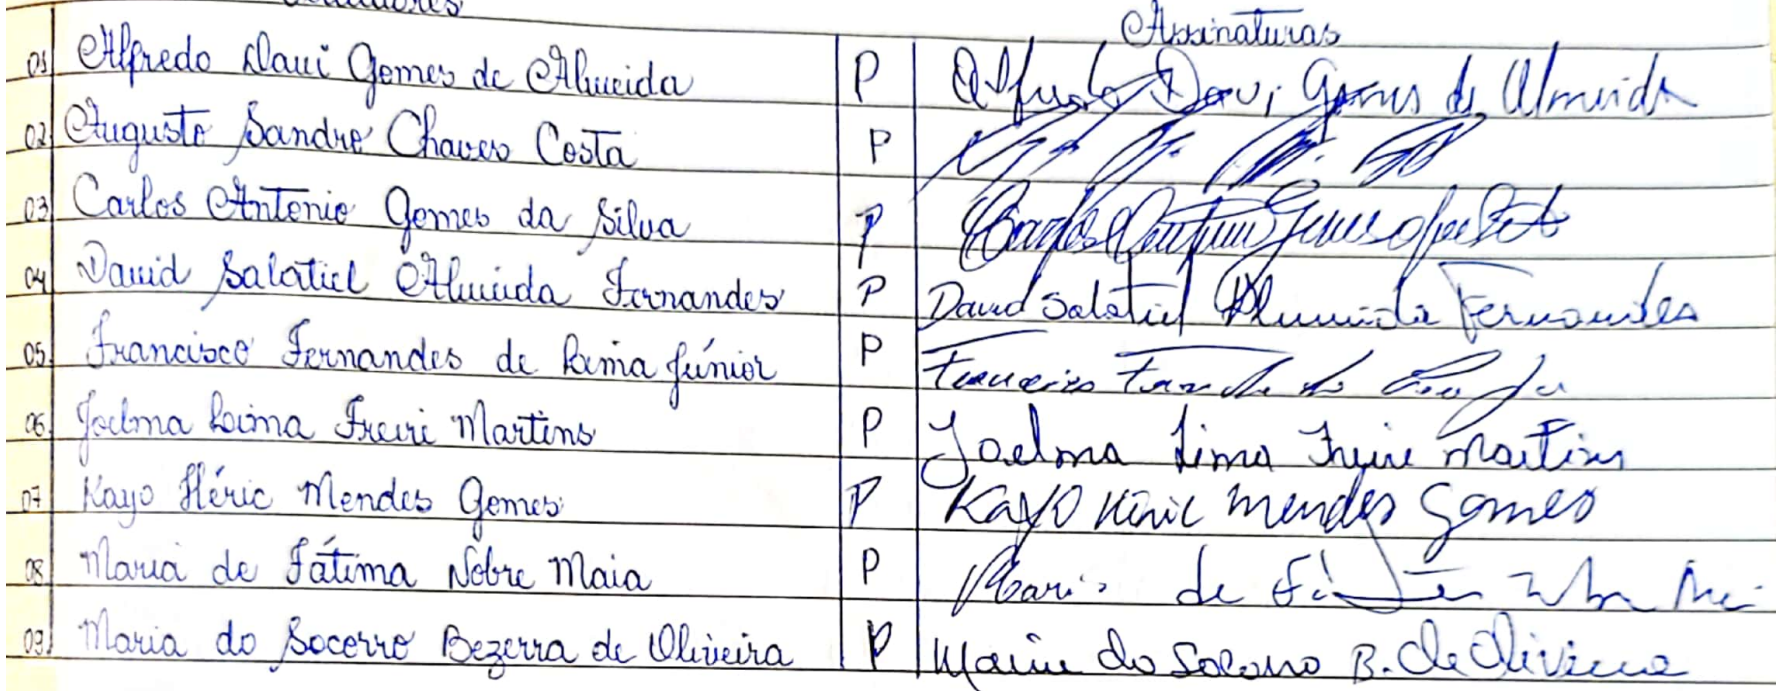 Assinaturas
01 Alfredo Davi Gomes de Almeida P Alfredo Davi Gomes de Almeida
02 Augusto Sandro Chaves Costa P
03 Carlos Antonio Gomes da Silva P Carlos Antonio Gomes da Silva
04 David Salatiel Almeida Fernandes P David Salatiel Almeida Fernandes
05 Francisco Fernandes de Lima Júnior P Francisco
06 Joelma Lima Freire Martins P Joelma Lima Freire Martins
07 Kayo Héric Mendes Gomes P Kayo Héric Mendes Gomes
08 Maria de Fátima Nobre Maia P Maria de
09 Maria do Socorro Bezerra de Oliveira P Maria do Socorro B. de Oliveira